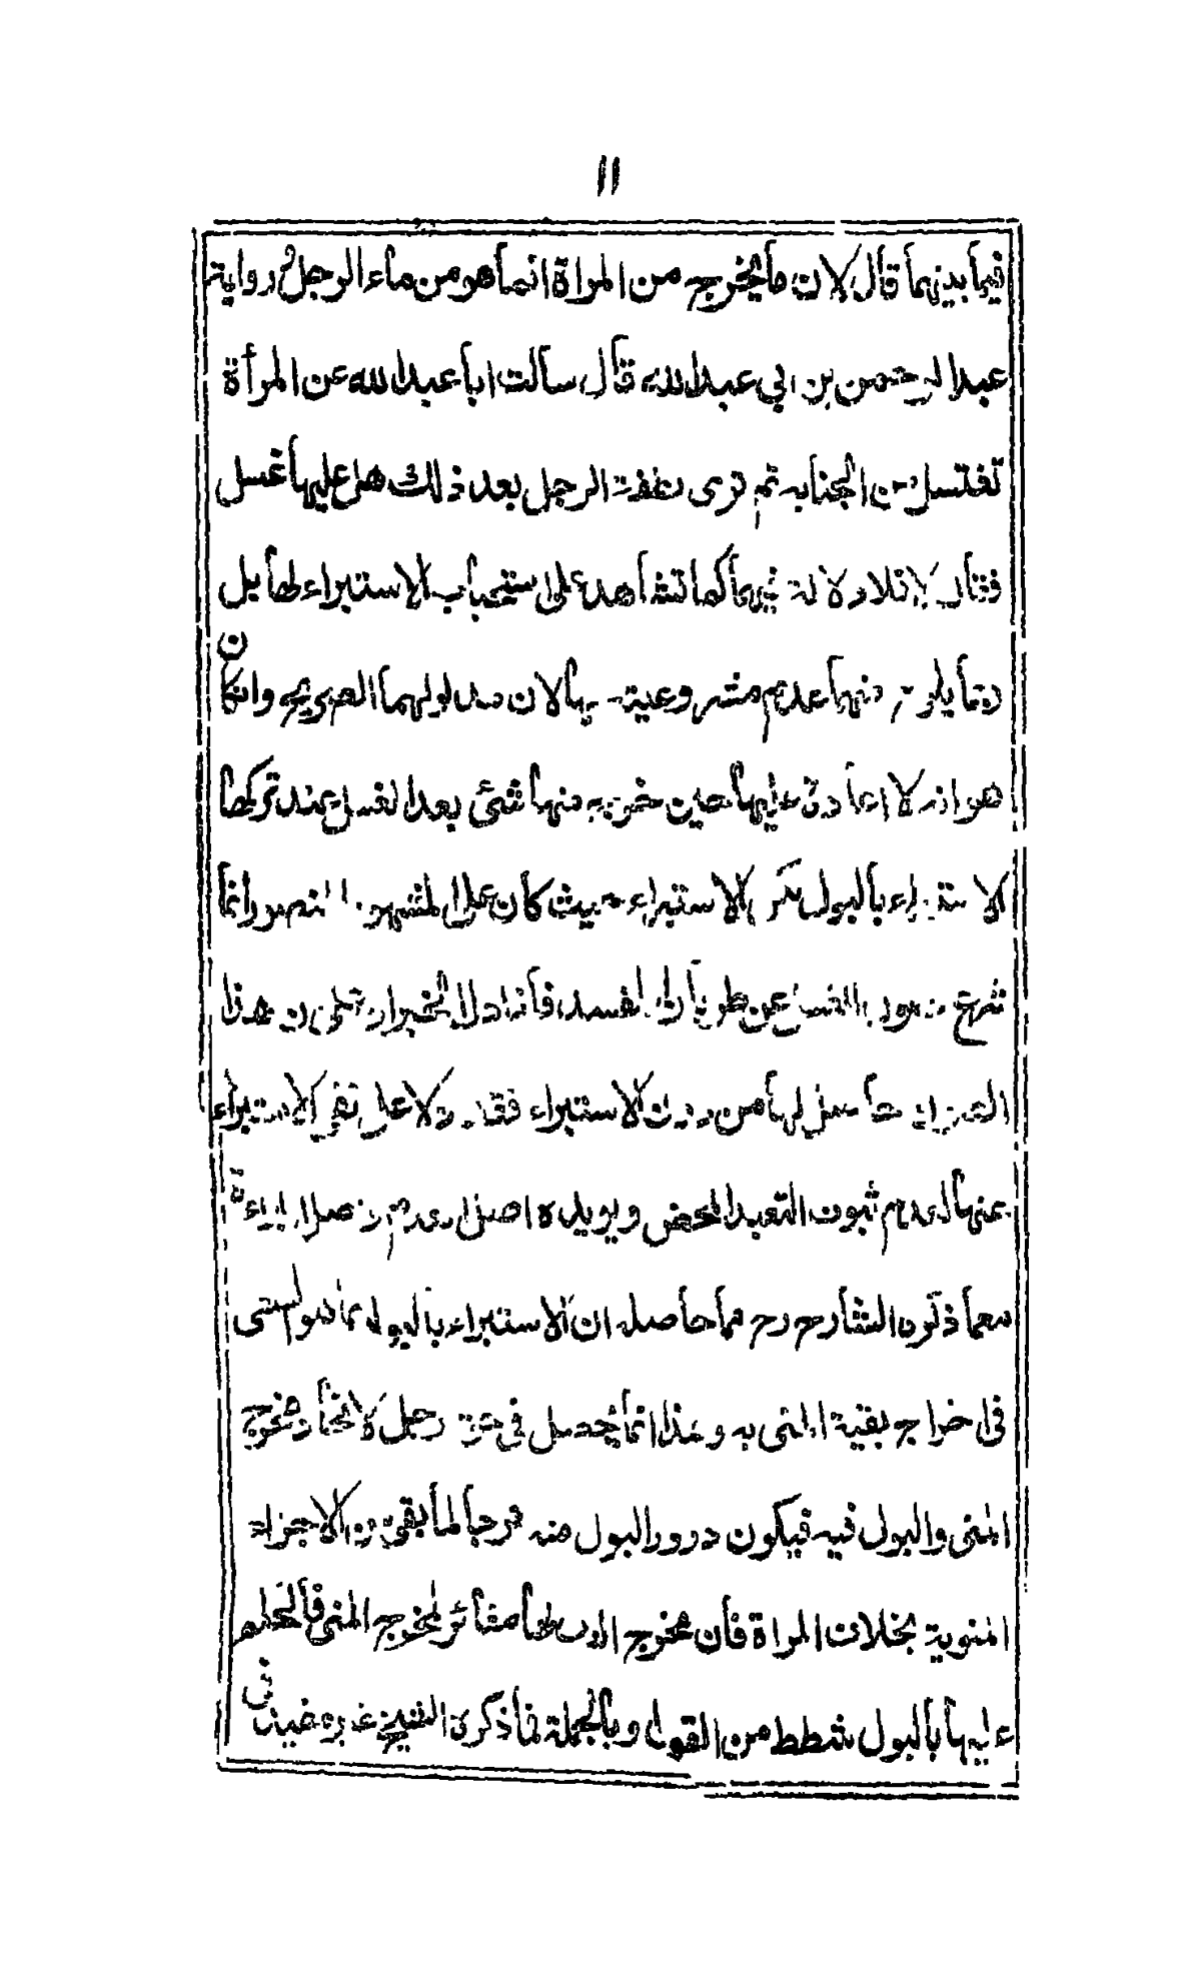 ١١
فيما بينهما قال لان ما يخرج من المراة انما هو من ماء الرجل و رواية
عبد الرحمن بن ابي عبد الله قال سالت ابا عبد الله عن المرأة
تغتسل من الجنابه ثم ترى نطفة الرجل بعد ذلك هل عليها غسل
فقال لا فلا دلالة فيهما كما تشاهد على استحباب الاستبراء لها بل
منها عدم مشروعية لان مدلولهما الصريح وانكان
هو انه لا اعادة عليها حين خروج منها شئ بعد الغسل عند تركها
الاستبراء بالبول الاستبراء حيث كان على المشهور المنصور انما
شرع الغسل عن فاذا دل الخبران على ان هذا
لها من دون الاستبراء فقد دلا على نفي الاستبراء
عنها لعدم ثبوت التعبد المحض ويويده اصل البراءة
معما ذكره الشارح رح مما حاصله ان الاستبراء بالبول
في اخراج بقية المنى به وهذا انما يحصل في حق رجل لاتحاد مخرج
المنى والبول فيه فيكون درور البول منه مخرجا لما بقي من الاجزاء
المنوية بخلاف المراة فان مخرج البول لها مغائر لمخرج المنى فالحكم
عليها بالبول شطط من القول وبالجملة فما ذكره الشيخ غير مرضى